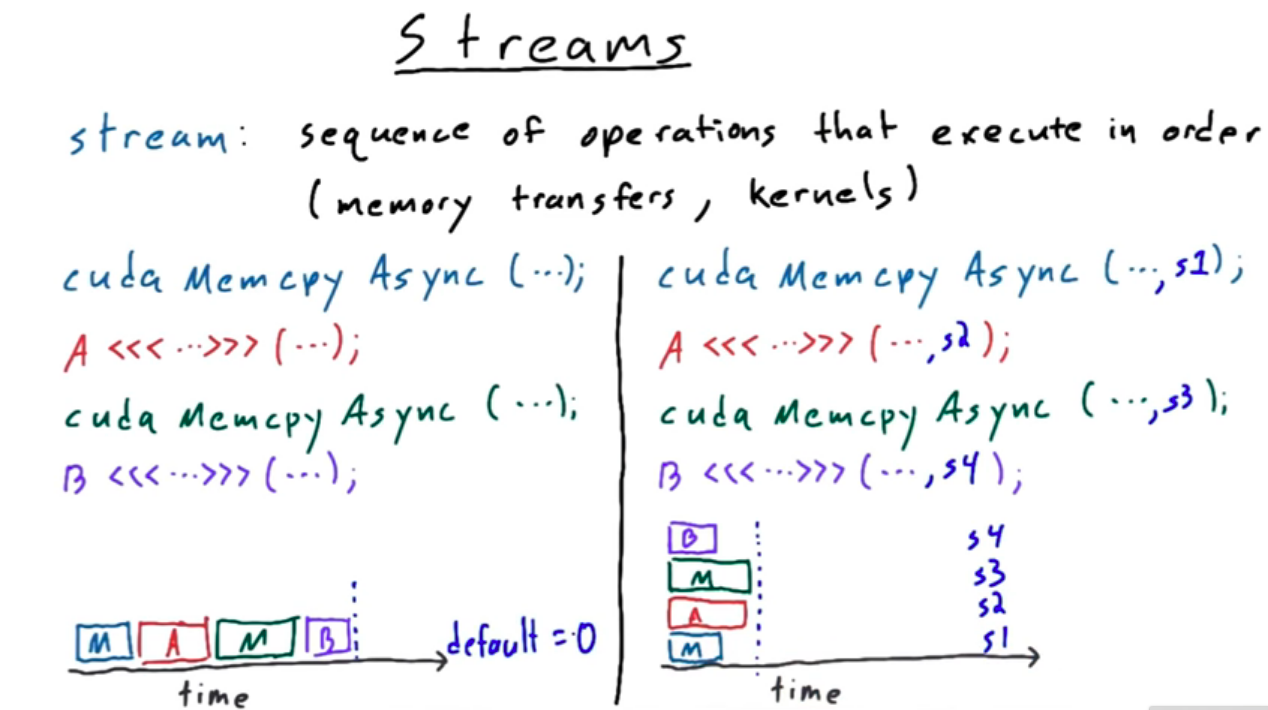 Streams
stream: sequence of operations that execute in order
(memory transfers, kernels)
cuda Memcpy Async (...);
A <<< ... >>> (...);
cuda Memcpy Async (...);
B <<< ... >>> (...);
M A M B default = 0
time
cuda Memcpy Async (..., s1);
A <<< ... >>> (..., s2);
cuda Memcpy Async (..., s3);
B <<< ... >>> (..., s4);
B s4
M s3
A s2
M s1
time